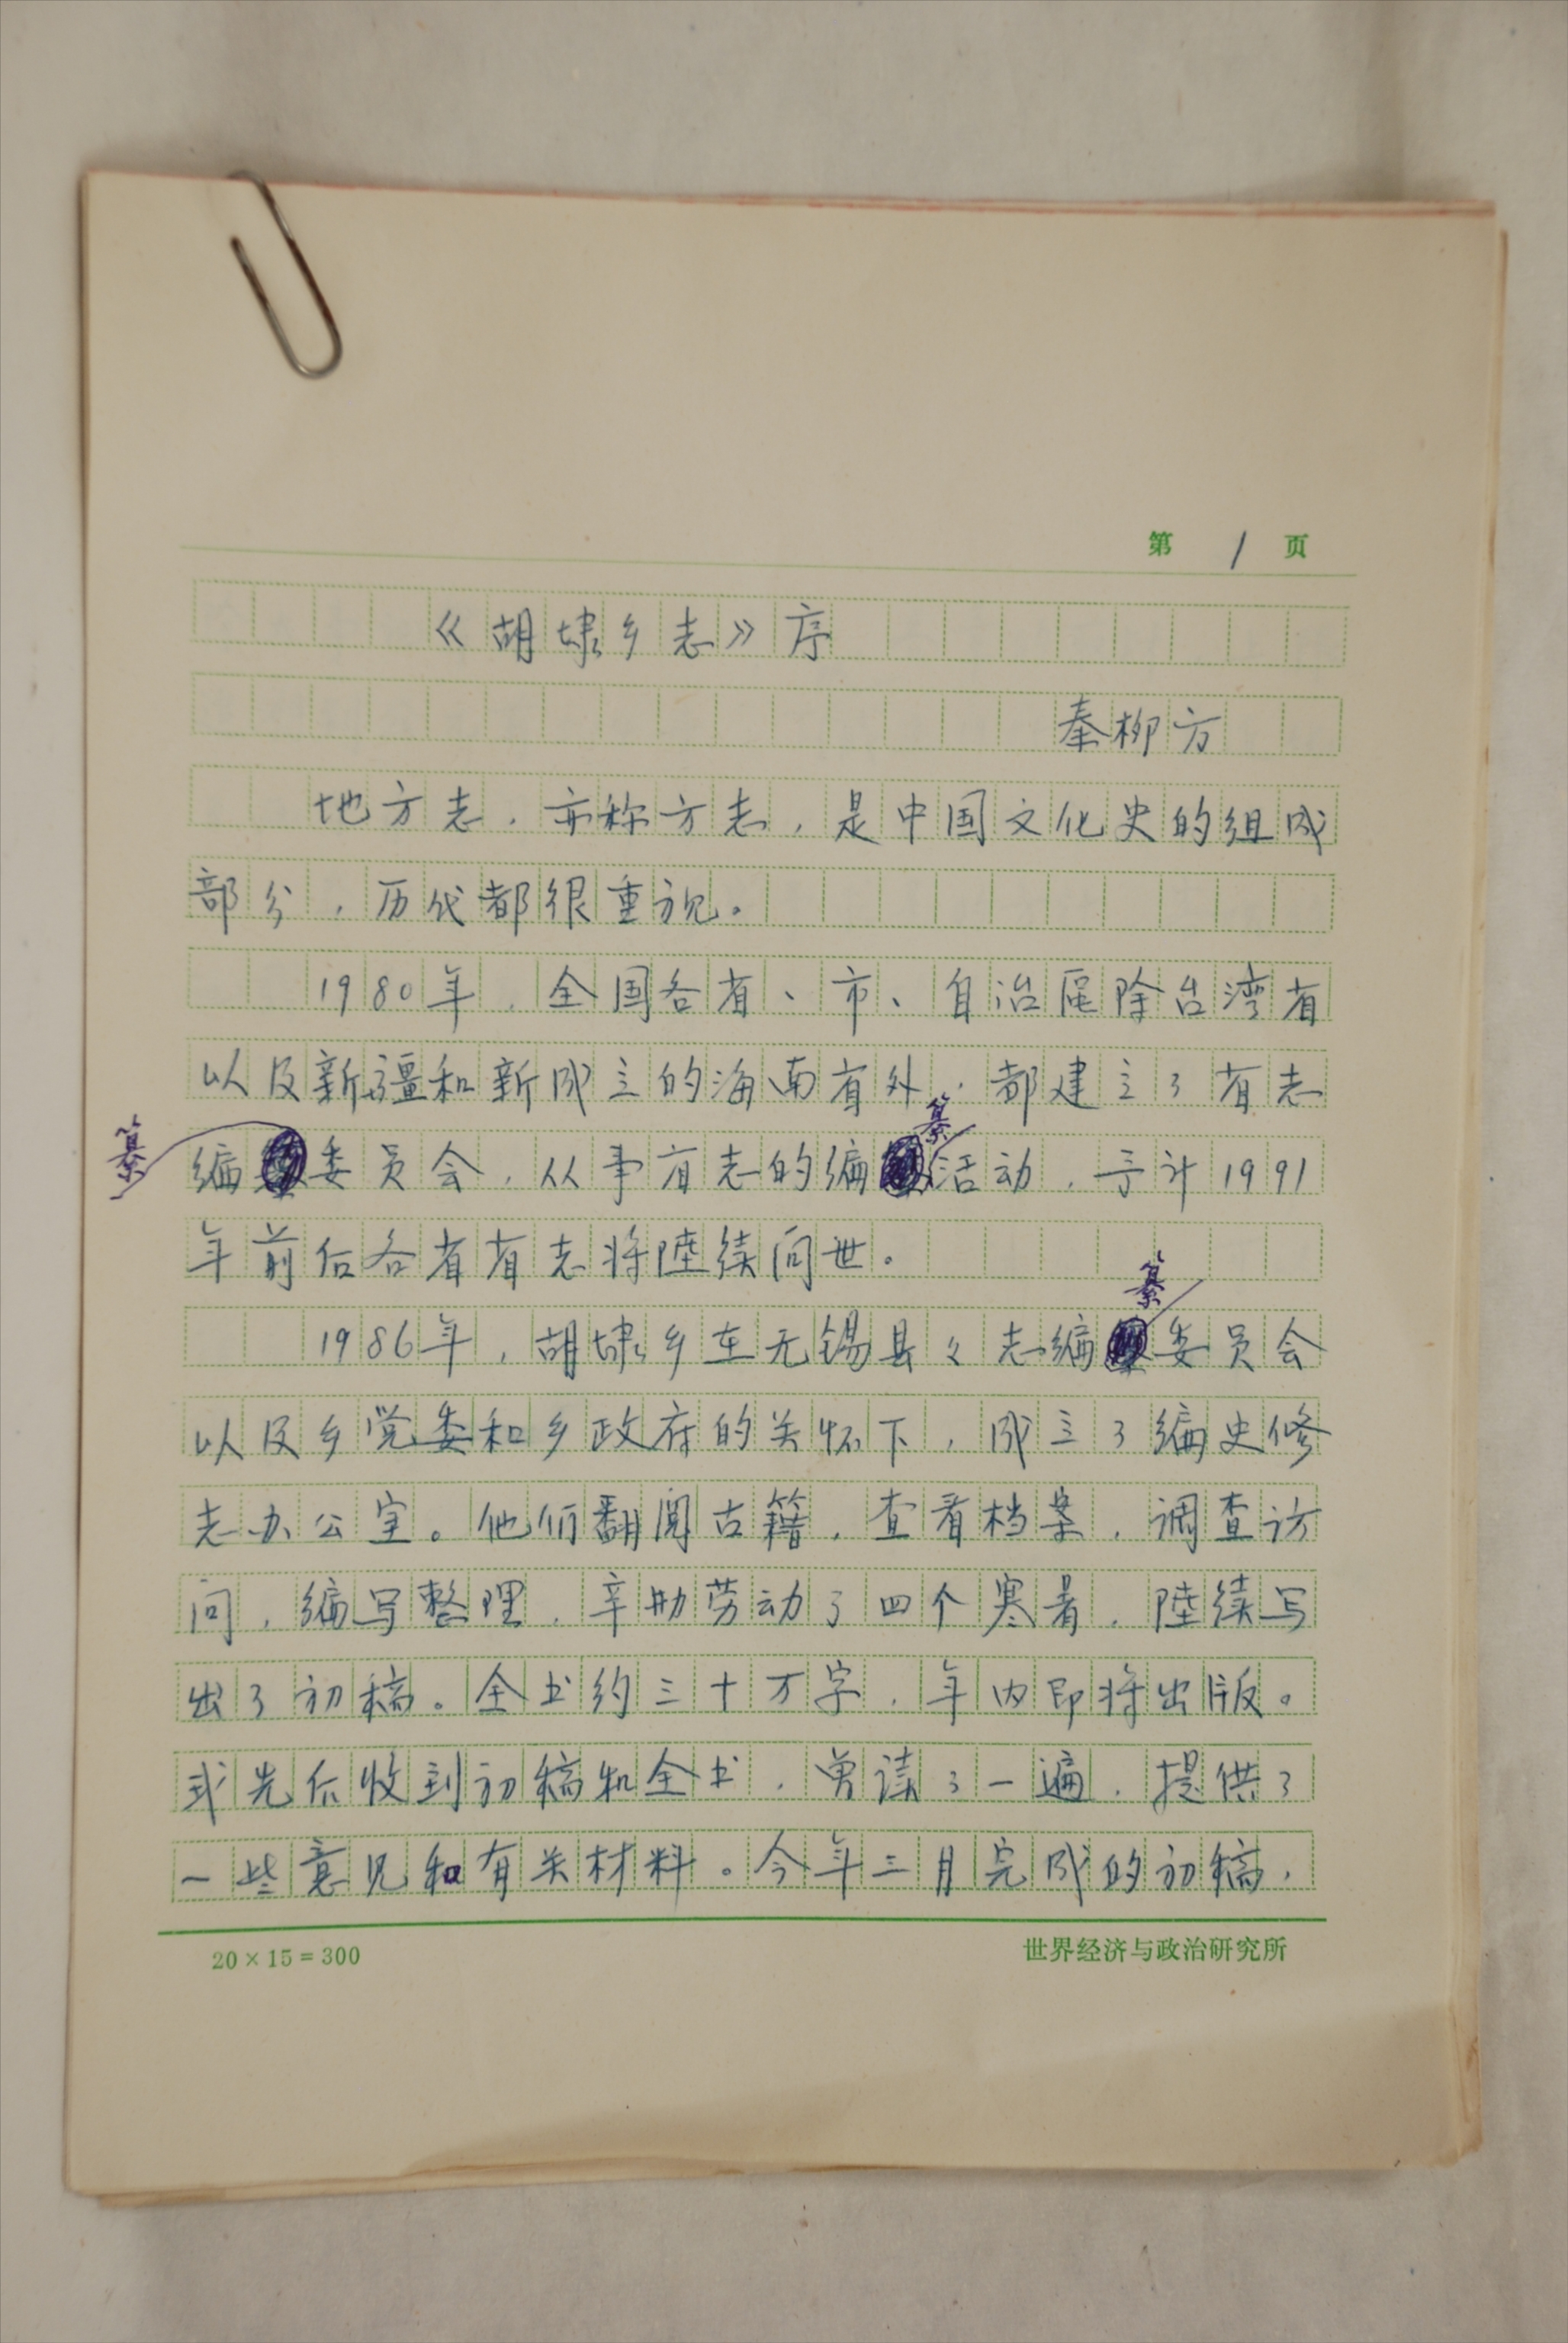 第 1 页
《胡埭乡志》序
秦柳方
地方志，亦称方志，是中国文化史的组成
部分，历代都很重视。
1980年，全国各省、市、自治区除台湾省
以及新疆和新成立的海南省外，都建立了省志
编纂委员会，从事省志的编纂活动，予计1991
年前后各省省志将陆续问世。
1986年，胡埭乡在无锡县々志编纂委员会
以及乡党委和乡政府的关怀下，成立了编史修
志办公室。他们翻阅古籍，查看档案，调查访
问，编写整理，辛勤劳动了四个寒暑，陆续写
出了初稿。全书约三十万字，年内即将出版。
我先后收到初稿和全书，曾读了一遍，提供了
一些意见和有关材料。今年三月完成的初稿，
20×15=300
世界经济与政治研究所